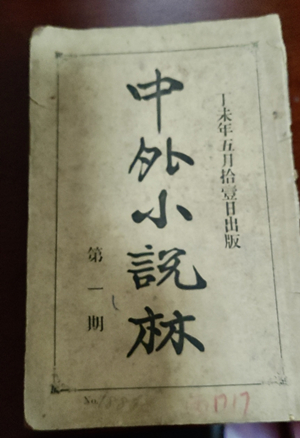 丁未年五月拾壹日出版
中外小說林
第一期
No.
1717